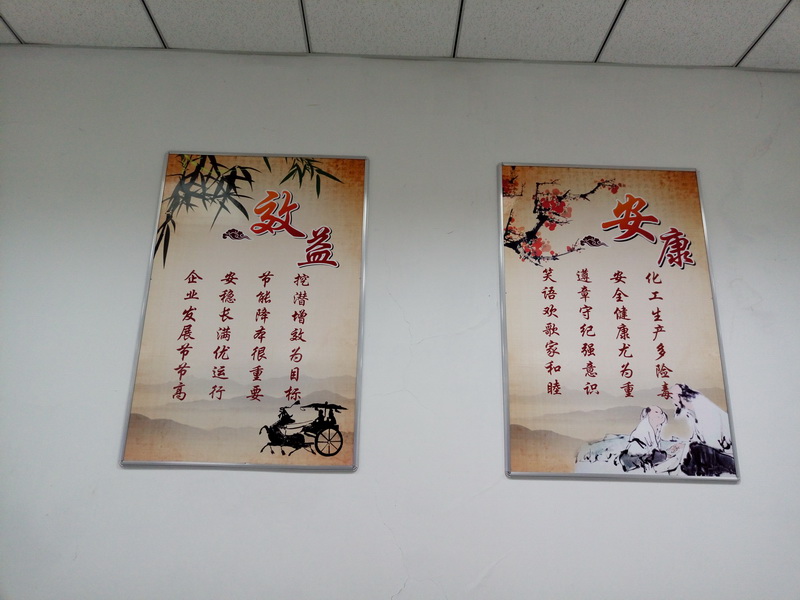 效益
挖潜增效为目标
节能降本很重要
安稳长满优运行
企业发展节节高
安康
化工生产多险毒
安全健康尤为重
遵章守纪强意识
笑语欢歌家和睦